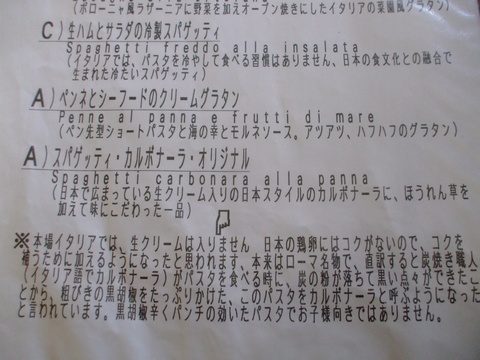 (ボローニャ風ラザーニアに野菜を加えオーブン焼きにしたイタリアの菜園風グラタン)
C)生ハムとサラダの冷製スパゲッティ
Spaghetti freddo alla insalata
(イタリアでは、パスタを冷やして食べる習慣はありません、日本の食文化との融合で
生まれた冷たいスパゲッティ)
A)ペンネとシーフードのクリームグラタン
Penne al panna e frutti di mare
(ペン先型ショートパスタと海の幸とモルネソース。アツアツ、ハフハフのグラタン)
A)スパゲッティ・カルボナーラ・オリジナル
Spaghetti carbonara alla panna
(日本で広まっている生クリーム入りの日本スタイルのカルボナーラに、ほうれん草を
加えて味にこだわった一品)
※本場イタリアでは、生クリームは入りません 日本の鶏卵にはコクがないので、コクを
補うために加えるようになったと思われます、本来はローマ名物で、直訳すると炭焼き職人
(イタリア語でカルボナーラ)がパスタを食べる時に、炭の粉が落ちて黒い点々ができたこ
とから、粗びきの黒胡椒をたっぷりかけた、このパスタをカルボナーラと呼ぶようになった
と言われています。黒胡椒辛くパンチの効いたパスタでお子様向きではありません。